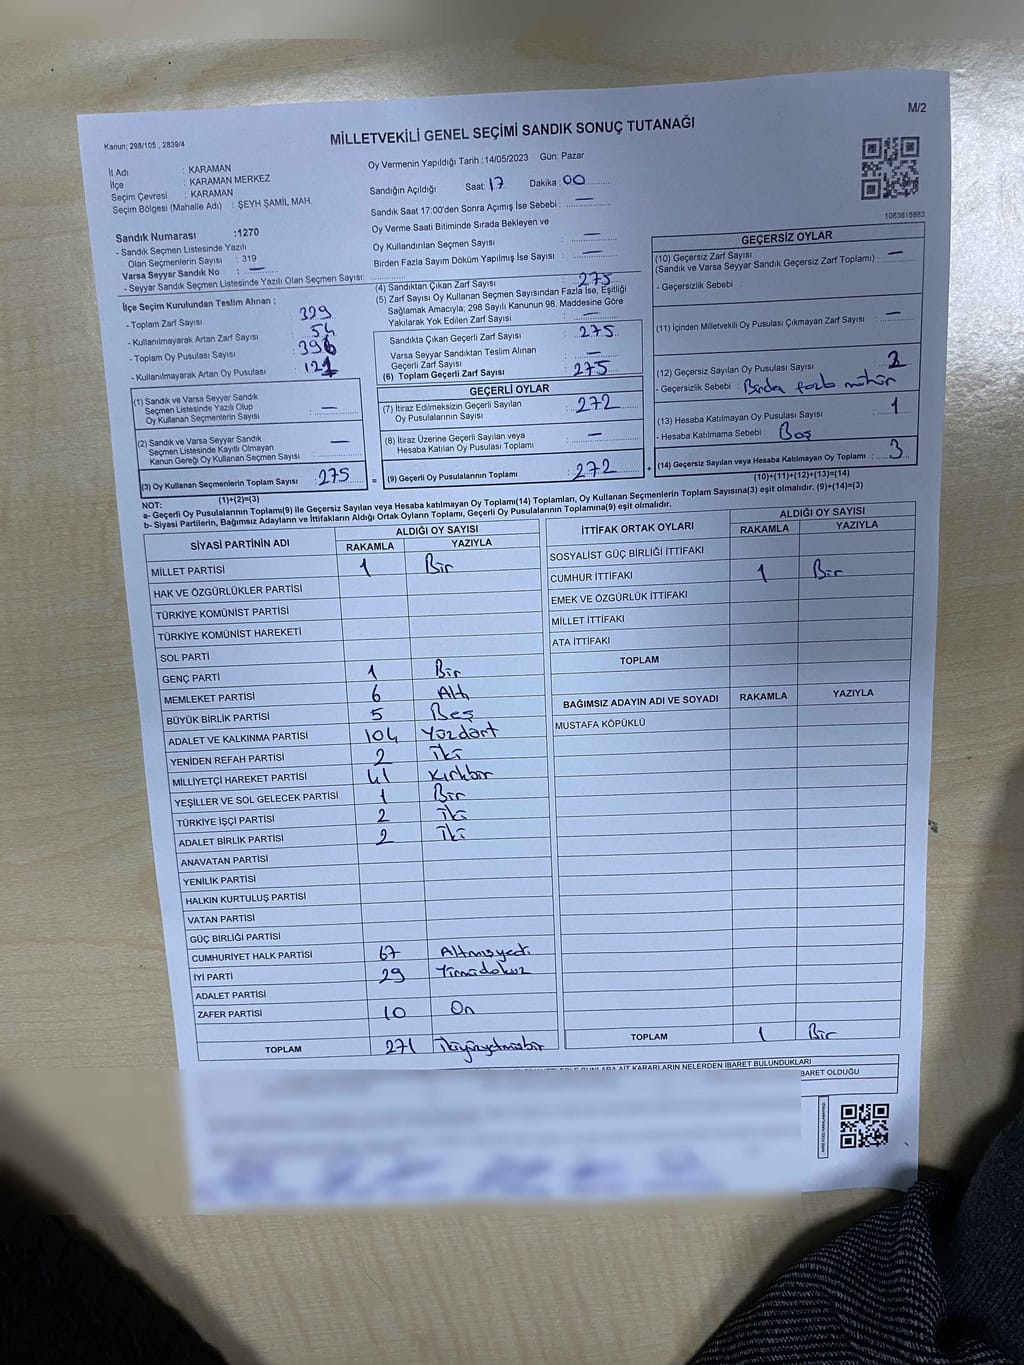 M/2
MİLLETVEKİLİ GENEL SEÇİMİ SANDIK SONUÇ TUTANAĞI
Kanun; 298/105 , 2839/4
İl Adı : KARAMAN
İlçe : KARAMAN MERKEZ
Seçim Çevresi : KARAMAN
Seçim Bölgesi (Mahalle Adı) : ŞEYH ŞAMİL MAH.
Sandık Numarası :1270
- Sandık Seçmen Listesinde Yazılı
Olan Seçmenlerin Sayısı : 319
Varsa Seyyar Sandık No : —
- Seyyar Sandık Seçmen Listesinde Yazılı Olan Seçmen Sayısı:
İlçe Seçim Kurulundan Teslim Alınan ;
- Toplam Zarf Sayısı : 329
- Kullanılmayarak Artan Zarf Sayısı : 54
- Toplam Oy Pusulası Sayısı : 396
- Kullanılmayarak Artan Oy Pusulası : 121
(1) Sandık ve Varsa Seyyar Sandık
Seçmen Listesinde Yazılı Olup
Oy Kullanan Seçmenlerin Sayısı : —
(2) Sandık ve Varsa Seyyar Sandık
Seçmen Listesinde Kayıtlı Olmayan
Kanun Gereği Oy Kullanan Seçmen Sayısı : —
(3) Oy Kullanan Seçmenlerin Toplam Sayısı : 275
(1)+(2)=(3)
Oy Vermenin Yapıldığı Tarih :14/05/2023 Gün: Pazar
Sandığın Açıldığı Saat: 17 Dakika : 00
Sandık Saat 17:00'den Sonra Açımış İse Sebebi : —
Oy Verme Saati Bitiminde Sırada Bekleyen ve
Oy Kullandırılan Seçmen Sayısı : —
Birden Fazla Sayım Döküm Yapılmış İse Sayısı : —
(4) Sandıktan Çıkan Zarf Sayısı : 275
(5) Zarf Sayısı Oy Kullanan Seçmen Sayısından Fazla İse, Eşitliği
Sağlamak Amacıyla; 298 Sayılı Kanunun 98. Maddesine Göre
Yakılarak Yok Edilen Zarf Sayısı : —
Sandıkta Çıkan Geçerli Zarf Sayısı : 275
Varsa Seyyar Sandıktan Teslim Alınan
Geçerli Zarf Sayısı : —
(6) Toplam Geçerli Zarf Sayısı : 275
GEÇERLİ OYLAR
(7) İtiraz Edilmeksizin Geçerli Sayılan
Oy Pusulalarının Sayısı : 272
(8) İtiraz Üzerine Geçerli Sayılan veya
Hesaba Katılan Oy Pusulası Toplamı : —
= (9) Geçerli Oy Pusulalarının Toplamı : 272 +
1083815883
GEÇERSİZ OYLAR
(10) Geçersiz Zarf Sayısı
(Sandık ve Varsa Seyyar Sandık Geçersiz Zarf Toplamı) : —
- Geçersizlik Sebebi :
(11) İçinden Milletvekili Oy Pusulası Çıkmayan Zarf Sayısı : —
(12) Geçersiz Sayılan Oy Pusulası Sayısı : 2
- Geçersizlik Sebebi : Birden fazla mühür
(13) Hesaba Katılmayan Oy Pusulası Sayısı : 1
- Hesaba Katılmama Sebebi : Boş
(14) Geçersiz Sayılan veya Hesaba Katılmayan Oy Toplamı : 3
(10)+(11)+(12)+(13)=(14)
NOT:
a- Geçerli Oy Pusulalarının Toplamı(9) ile Geçersiz Sayılan veya Hesaba katılmayan Oy Toplamı(14) Toplamları, Oy Kullanan Seçmenlerin Toplam Sayısına(3) eşit olmalıdır. (9)+(14)=(3)
b- Siyasi Partilerin, Bağımsız Adayların ve İttifakların Aldığı Ortak Oyların Toplamı, Geçerli Oy Pusulalarının Toplamına(9) eşit olmalıdır.
SİYASİ PARTİNİN ADI ALDIĞI OY SAYISI
RAKAMLA YAZIYLA
MİLLET PARTİSİ 1 Bir
HAK VE ÖZGÜRLÜKLER PARTİSİ
TÜRKİYE KOMÜNİST PARTİSİ
TÜRKİYE KOMÜNİST HAREKETİ
SOL PARTİ
GENÇ PARTİ 1 Bir
MEMLEKET PARTİSİ 6 Altı
BÜYÜK BİRLİK PARTİSİ 5 Beş
ADALET VE KALKINMA PARTİSİ 104 Yüzdört
YENİDEN REFAH PARTİSİ 2 İki
MİLLİYETÇİ HAREKET PARTİSİ 41 Kırkbir
YEŞİLLER VE SOL GELECEK PARTİSİ 1 Bir
TÜRKİYE İŞÇİ PARTİSİ 2 İki
ADALET BİRLİK PARTİSİ 2 İki
ANAVATAN PARTİSİ
YENİLİK PARTİSİ
HALKIN KURTULUŞ PARTİSİ
VATAN PARTİSİ
GÜÇ BİRLİĞİ PARTİSİ
CUMHURİYET HALK PARTİSİ 67 Altmışyedi
İYİ PARTİ 29 Yirmidokuz
ADALET PARTİSİ
ZAFER PARTİSİ 10 On
TOPLAM 271 İkiyüzyetmişbir
İTTİFAK ORTAK OYLARI ALDIĞI OY SAYISI
RAKAMLA YAZIYLA
SOSYALİST GÜÇ BİRLİĞİ İTTİFAKI
CUMHUR İTTİFAKI 1 Bir
EMEK VE ÖZGÜRLÜK İTTİFAKI
MİLLET İTTİFAKI
ATA İTTİFAKI
TOPLAM
BAĞIMSIZ ADAYIN ADI VE SOYADI RAKAMLA YAZIYLA
MUSTAFA KÖPÜKLÜ
TOPLAM 1 Bir
KARARLARIN NELERDEN İBARET BULUNDUKLARI
BARET OLDUĞU